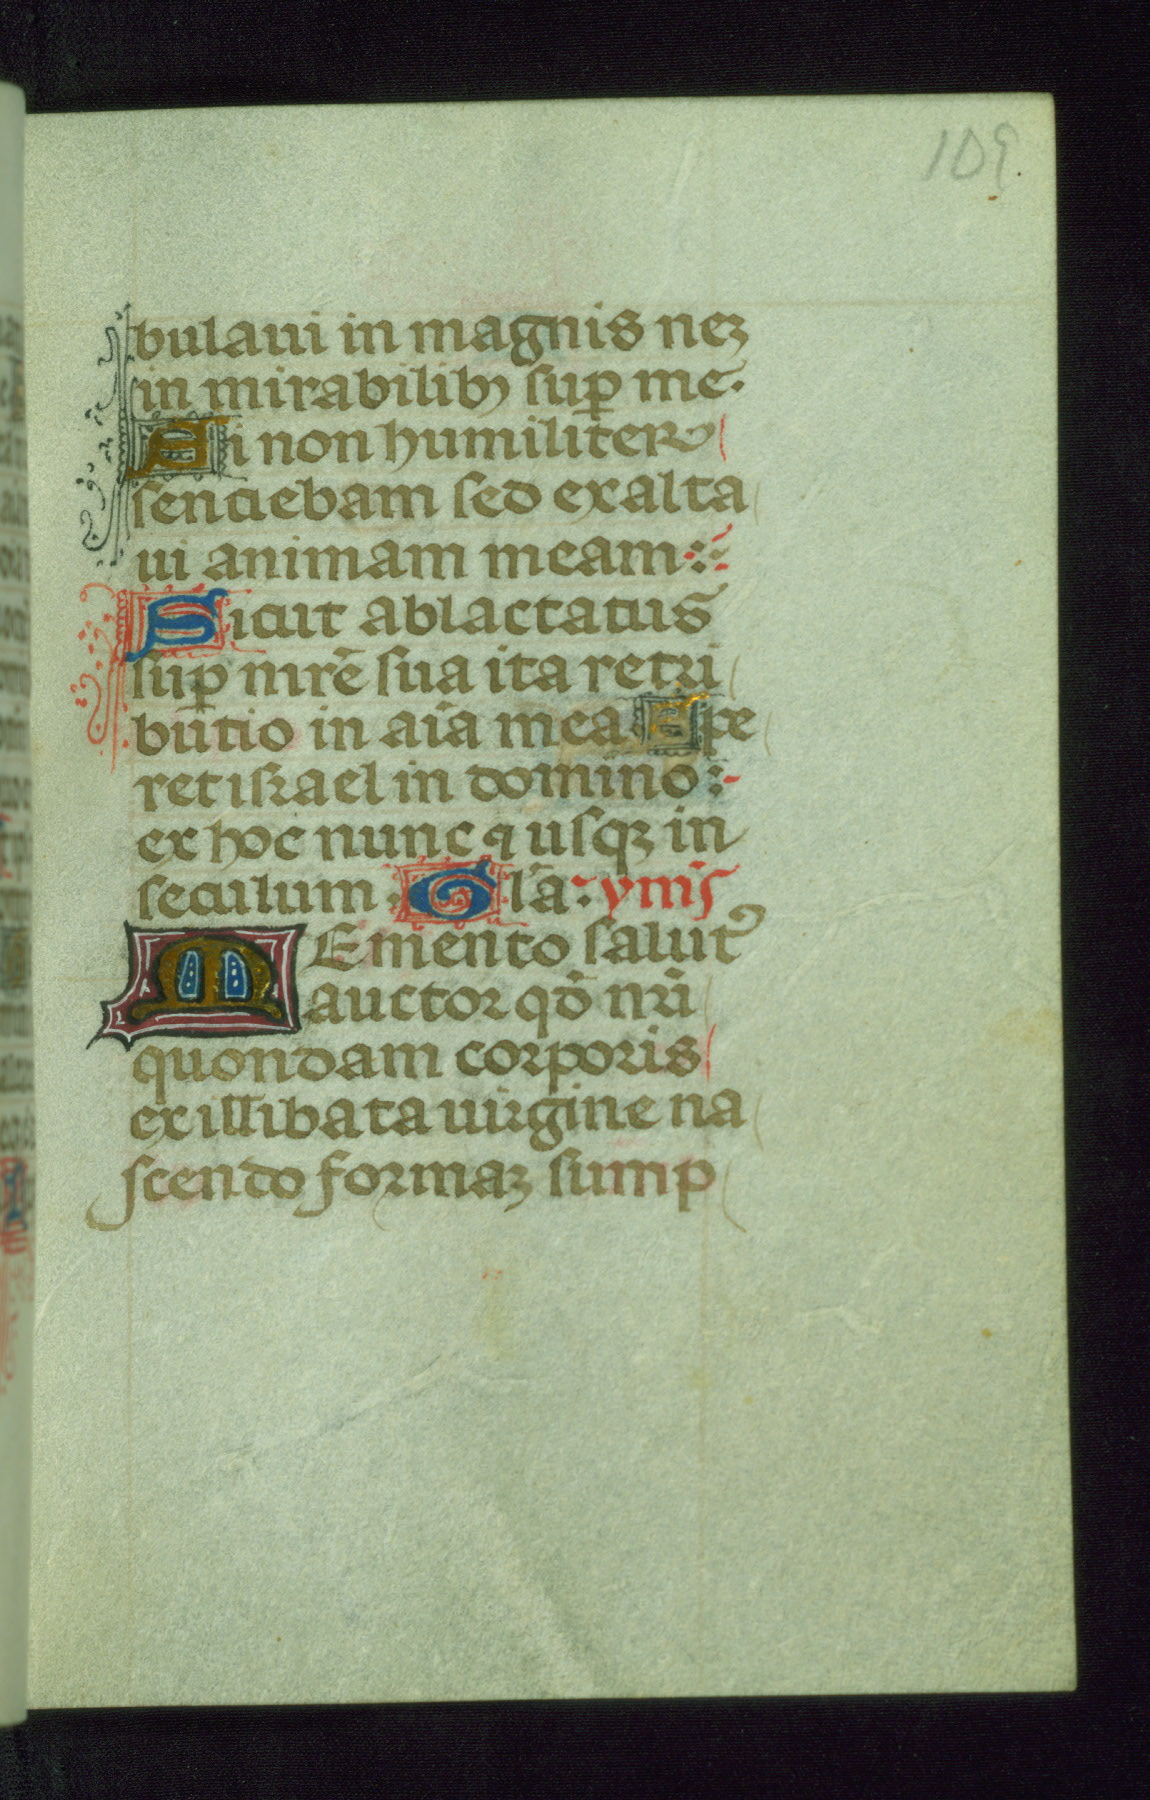 109.
bulaui in magnis neqꝫ
in mirabilibꝰ suꝑ me.
Si non humiliter
senciebam sed exalta
ui animam meam:
Sicut ablactatus
suꝑ mrē sua ita retri
butio in aīa mea Spe
ret isrĺael in domino:
ex hoc nunc ⁊ usqꝫ in
seculum. Glā: ymꝰ
Memento salutꝭ
auctor qđ nrī
quondam corporis
ex illibata uirgine na
scendo formaꝫ sump